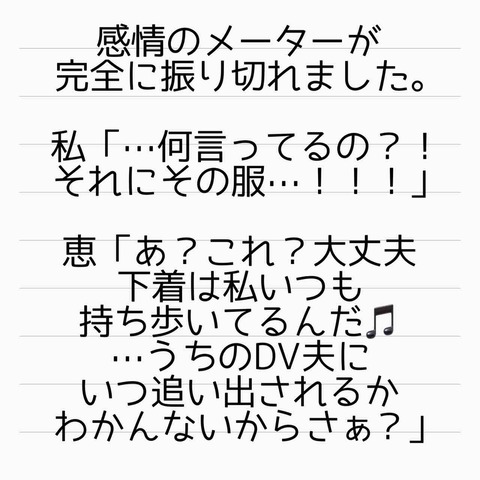 感情のメーターが
完全に振り切れました。
私「…何言ってるの？！
それにその服…！！！」
恵「あ？これ？大丈夫
下着は私いつも
持ち歩いてるんだ🎵
…うちのDV夫に
いつ追い出されるか
わかんないからさぁ？」